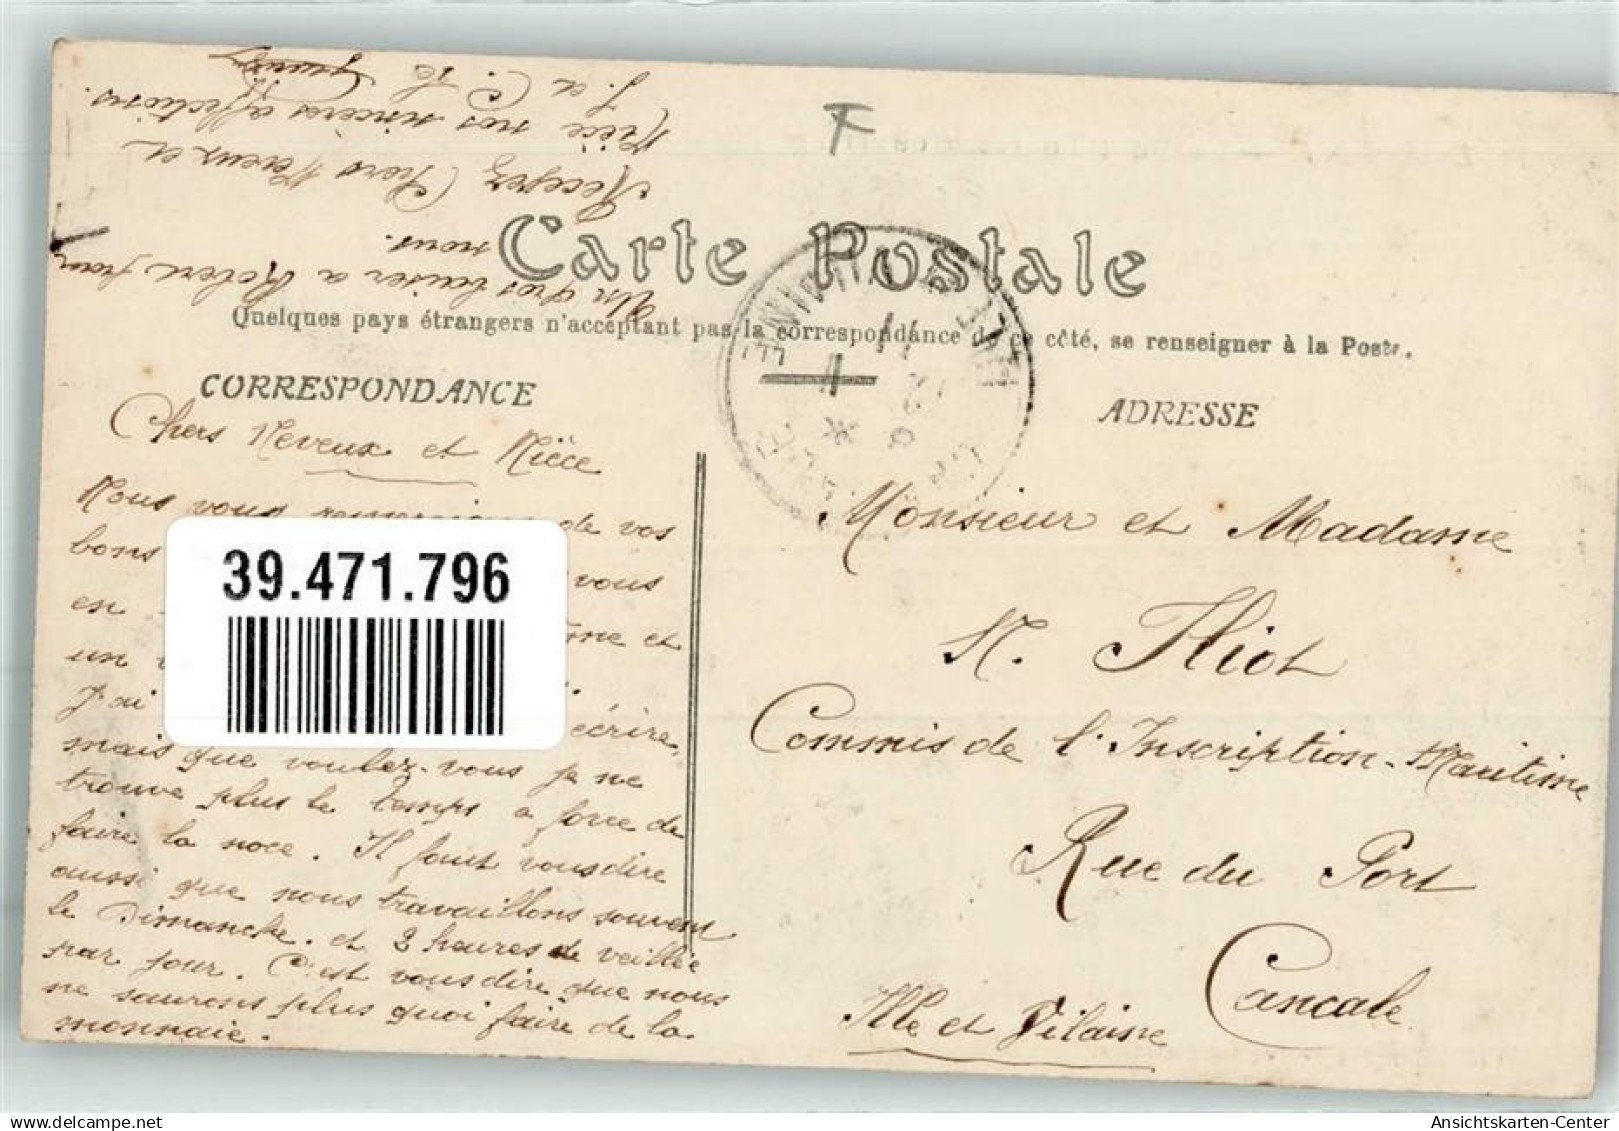 F
Carte Postale
Quelques pays étrangers n'acceptant pas la correspondance de ce côté, se renseigner à la Poste.
CORRESPONDANCE
ADRESSE
Chers Neveux et Nièce
Nous vous remercions de vos
bons vous
en et
un
J'ai écrire,
mais que voulez-vous je ne
trouve plus le temps a force de
faire la noce. Il faut vous dire
aussi que nous travaillons souvent
le Dimanche. et 2 heures de veillée
par jour. C'est vous dire que nous
ne saurons plus quoi faire de la
monnaie.
Un gros baiser a Robert pour
nous.
Recevez Chers Neveux et
Nièce nos sincères affections.
J. et C.
39.471.796
Monsieur et Madame
N. Hiot
Commis de l'Inscription-Maritime
Rue du Port
Cancale
Ille et Vilaine
Ansichtskarten-Center